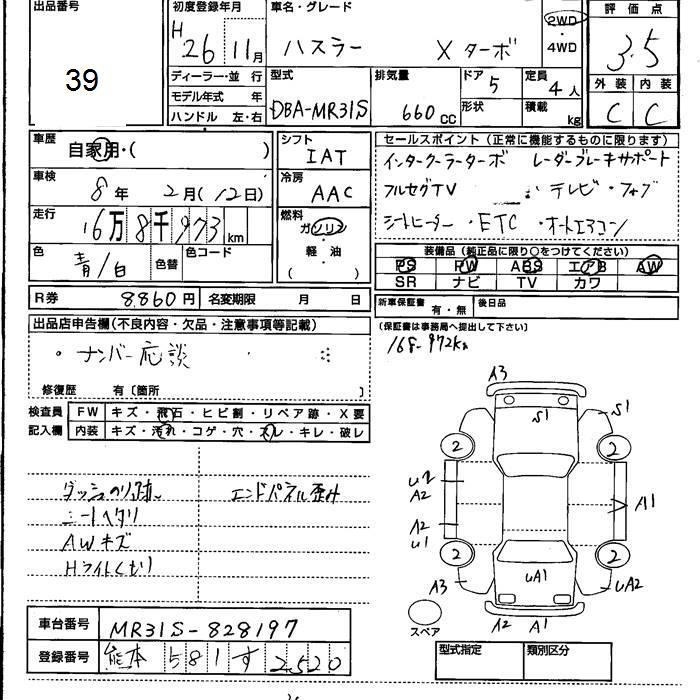 出品番号
39
初度登録年月
H26 11月
車名・グレード
ハスラー Xターボ
2WD
・
4WD
評価点
3.5
外装 内装
C C
ディーラー・並行
モデル年式 年
ハンドル 左・右
型式
DBA-MR31S
排気量
660cc
ドア
5
形状
定員
4人
積載
kg
車歴
自家用・( )
車検
8年 2月(12日)
走行
16万8千973km
色
青/白
色替
色コード
R券
8,860円
名変期限 月 日
シフト
IAT
冷房
AAC
燃料
ガソリン
・
軽・油
( )
セールスポイント(正常に機能するものに限ります)
インタークーラーターボ レーダーブレーキサポート
フルセグTV テレビ・フォグ
シートヒーター・ETC・オートエアコン
装備品(純正品に限り○をつけてください)
PS PW ABS エアB AW
SR ナビ TV カワ
新車保証書
有・無
後日品
(保証書は事務局へ提出して下さい)
168,972km
出品店申告欄(不良内容・欠品・注意事項等記載)
・ナンバー応談
修復歴 有〔箇所 〕
検査員
記入欄
FW キズ・飛石・ヒビ割・リペア跡・X要
内装 キズ・汚れ・コゲ・穴・スレ・キレ・破レ
ダッシュのり跡
シートヘタリ
AWキズ
Hライトくもり
エンドパネル歪み
A3
S1
S1
2
2
U2
A2
A1
A2
U1
2
2
A3
UA1
UA2
A2
A1
スペア
車台番号
MR31S-828197
登録番号
熊本 581 す 2520
型式指定
類別区分